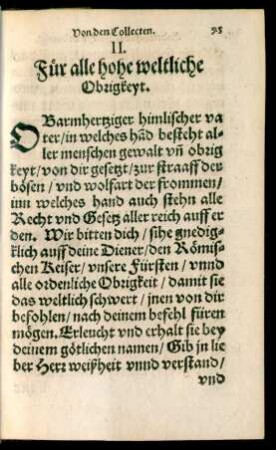 Von den Collecten. 95
II.
Für alle hohe weltliche
Obrigkeyt.
O Barmhertziger himlischer va
ter/in welches hād besteht al-
ler menschen gewalt vñ obrig
keyt/von dir gesetzt/zur straaff der
bösen/vnd wolfart der frommen/
inn welches hand auch stehn alle
Recht vnd Gesetz aller reich auff er
den. Wir bitten dich/sihe gnedig-
klich auff deine Diener/den Römis-
chen Keiser/vnsere Fürsten/vnnd
alle ordenliche Obrigkeit/damit sie
das weltlich schwert/jnen von dir
befohlen/nach deinem befehl füren
mögen. Erleucht vnd erhalt sie bey
deinem götlichen namen/Gib in lie
ber Herr weißheit vnnd verstand/
vnd